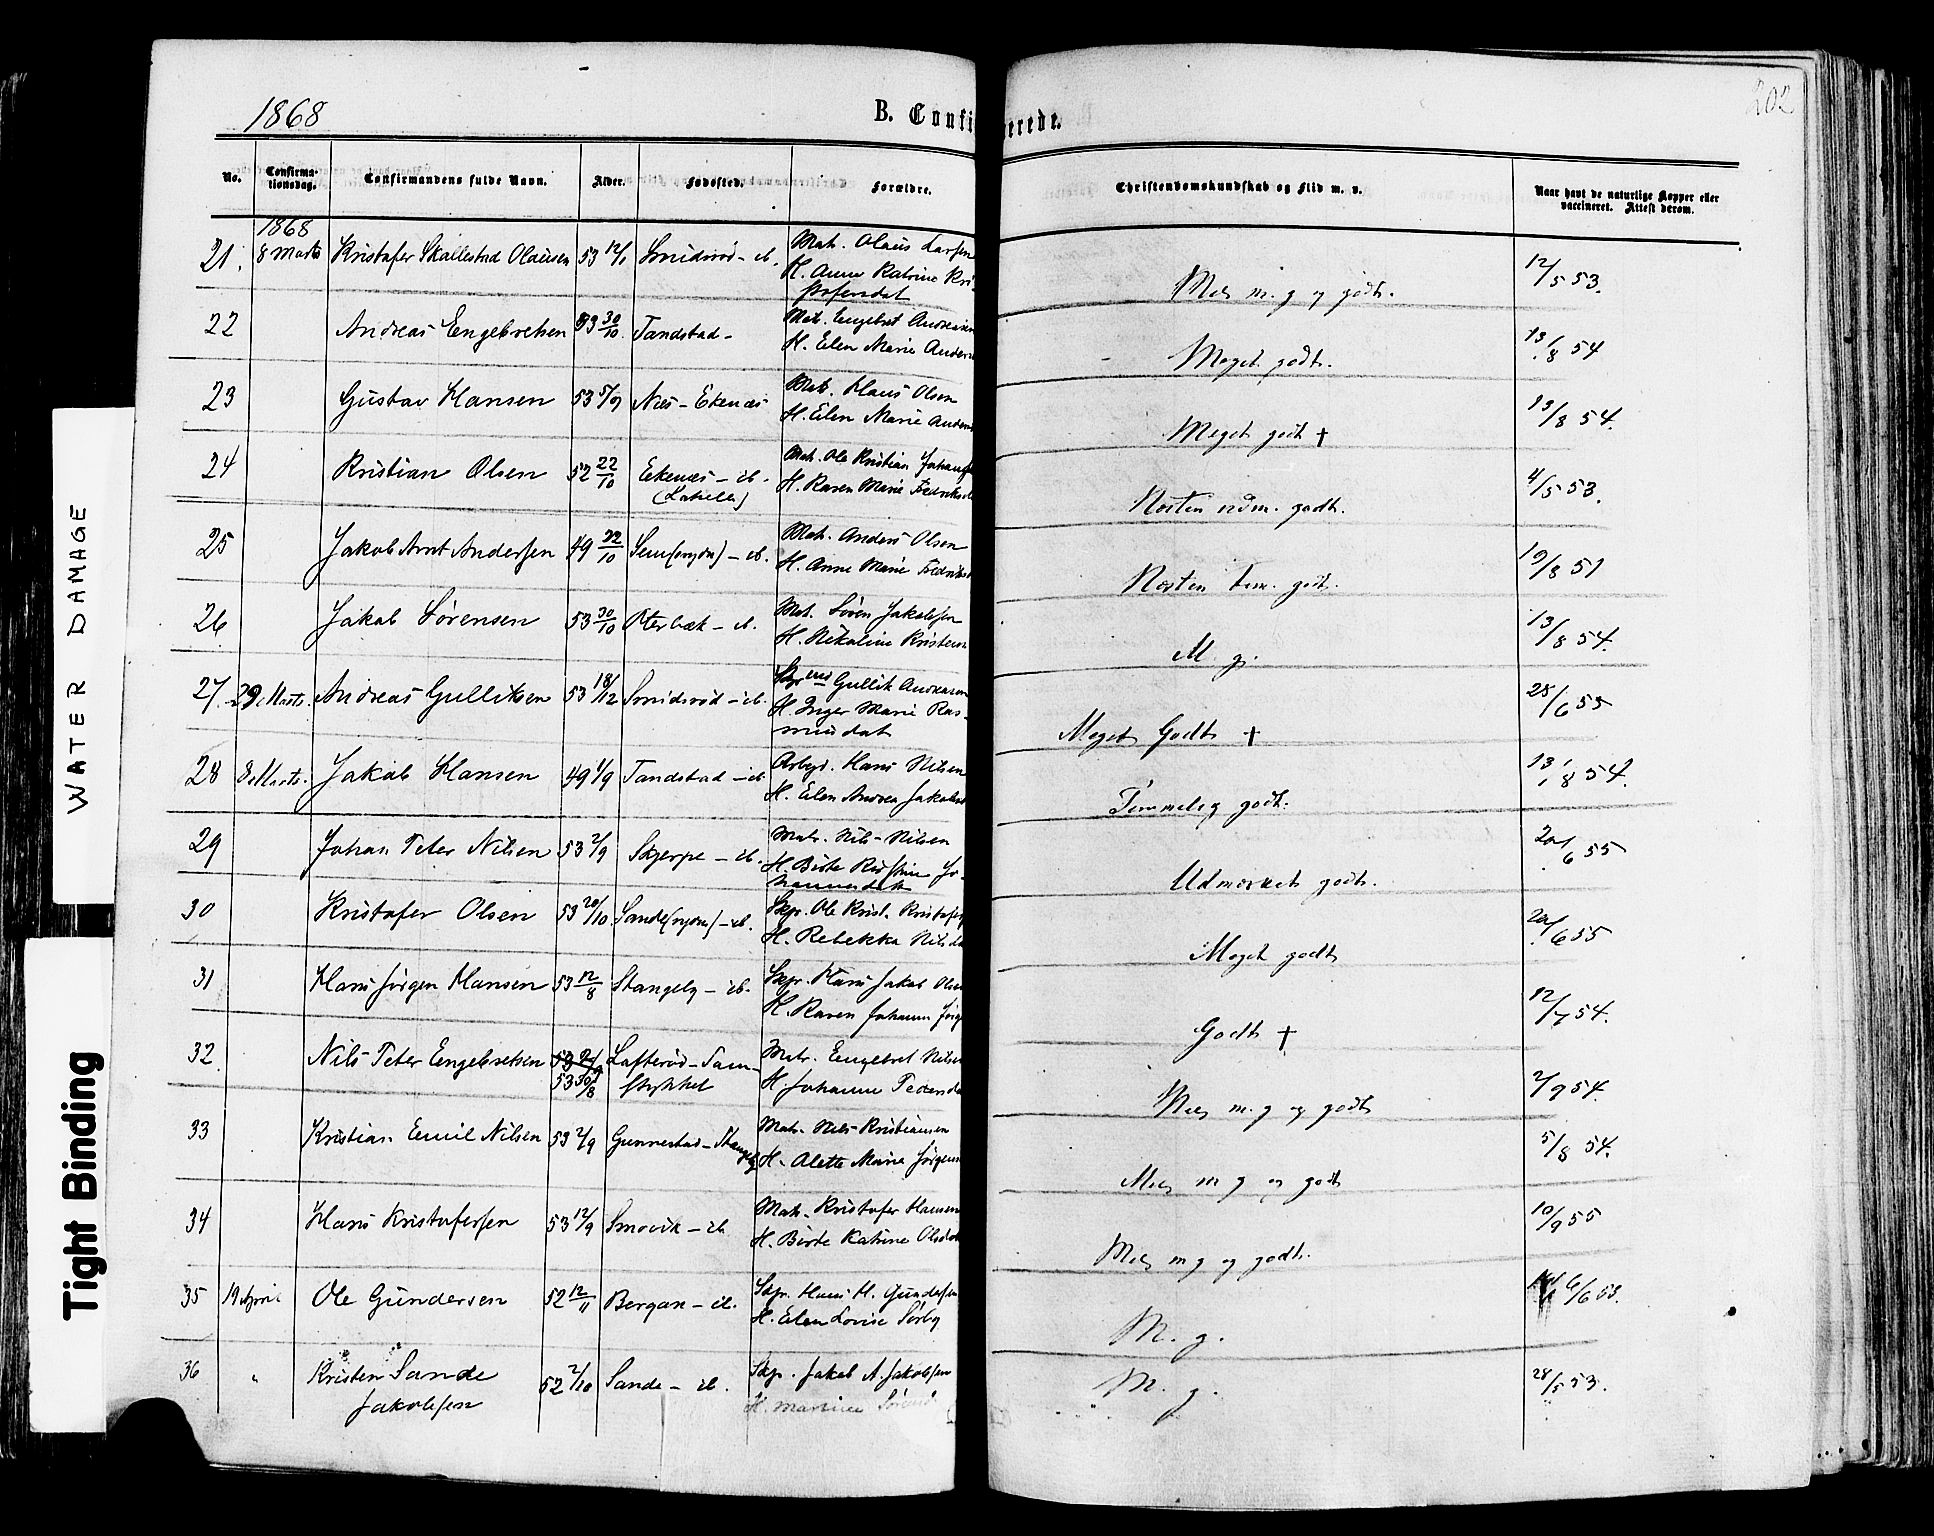 1868
B. Confi
erede.
202
WATER DAMAGE
Tight Binding
No. Confirma-tionsdag. Confirmandens fulde Navn. Alder. Fødested. Forældre. Christendomskundskab og Flid m. v. Naar havt de naturlige Kopper eller vaccineret. Attest derom.
1868
21. 8 Marts Kristofer Skallestad Olausen 53 12/1 Smidsrød - ib. Mat. Olaus Larsen
H. Anne Katrine Kri-
stofersdat
Meg m. g og godt. 12/5 53.
22 Andreas Engebretsen 53 30/10 Tandstad - Mat. Engebret Andreasen
H. Elen Marie Anders
Meget godt. 13/8 54
23 Gustav Hansen 53 5/9 Næs - Ekenæs Mat. Hans Olsen
H. Elen Marie Anders
Meget godt + 13/8 54.
24 Kristian Olsen 52 22/10 Ekenæs - ib. Mat. Ole Kristian Johan
H. Karen Marie Fredriks
Næsten udm. godt. 4/5 53.
25 Jakob Arnt Andersen 49 22/10 Sem - ib. Mat. Anders Olsen
H. Anne Marie Fredriks
Næsten tem. godt. 19/8 51
26 Jakob Sørensen 53 30/10 Oterbæk - ib. Mat. Søren Jakobsen
H. Nikoline Kristens
M. g. 13/8 54.
27. 29 Marts. Andreas Gulliksen 53 18/12 Smidsrød - ib. Gullik Andreasen
H. Inger Marie Ras-
musdat
Meget Godt + 28/6 55
28 8 Marts. Jakob Hansen 49 1/9 Tandstad - ib. Arbejd. Hans Nilsen
H. Elen Andrea Jakobs
Temmelig godt. 13/8 54.
29 Johan Peter Nilsen 53 2/9 Skjerpe - ib. Matr. Nils Nilsen
H. Birte Kristine Jo-
hannesdat
Udmærket godt. 6 55
30 Kristofer Olsen 53 20/10 Sande - ib. Skpr. Ole Krist. Kristofers
H. Rebekka Nilsda
Meget godt 6 55
31 Hans Jørgen Hansen 53 12/8 Stangeby - ib. Skpr. Hans Jakob Ols
H. Karen Johanne Jørg
Godt + 12/7 54.
32. Nils Peter Engebretsen 53 30/8 Lofterød - Tam-
stykket Matr. Engebret Nilsen
H. Johanne Peders
Meg m. g og godt 2/9 54.
33 Kristian Emil Nilsen 53 2/9 Gunnestad - Stangeby Mat. Nils Kristiansen
H. Alette Marie Jørgens
Meg m g og godt 5/8 54.
34 Hans Kristofersen 53 12/9 Smovik - ib Mat. Kristofer Hansen
H. Birte Katrine Olsdat
Meg m g og godt. 10/9 55
35 19 April Ole Gundersen 52 12/11 Bergan - ib. Skpr. Hans H. Gundersen
H. Elen Lovise Sørby
M. g. 6/6 53.
36 " Kristen Sande
Jakobsen 52 2/10 Sande - ib. Skpr. Jakob A. Jakobsen
H. Martine Sørens
M. g. 28/5 53.